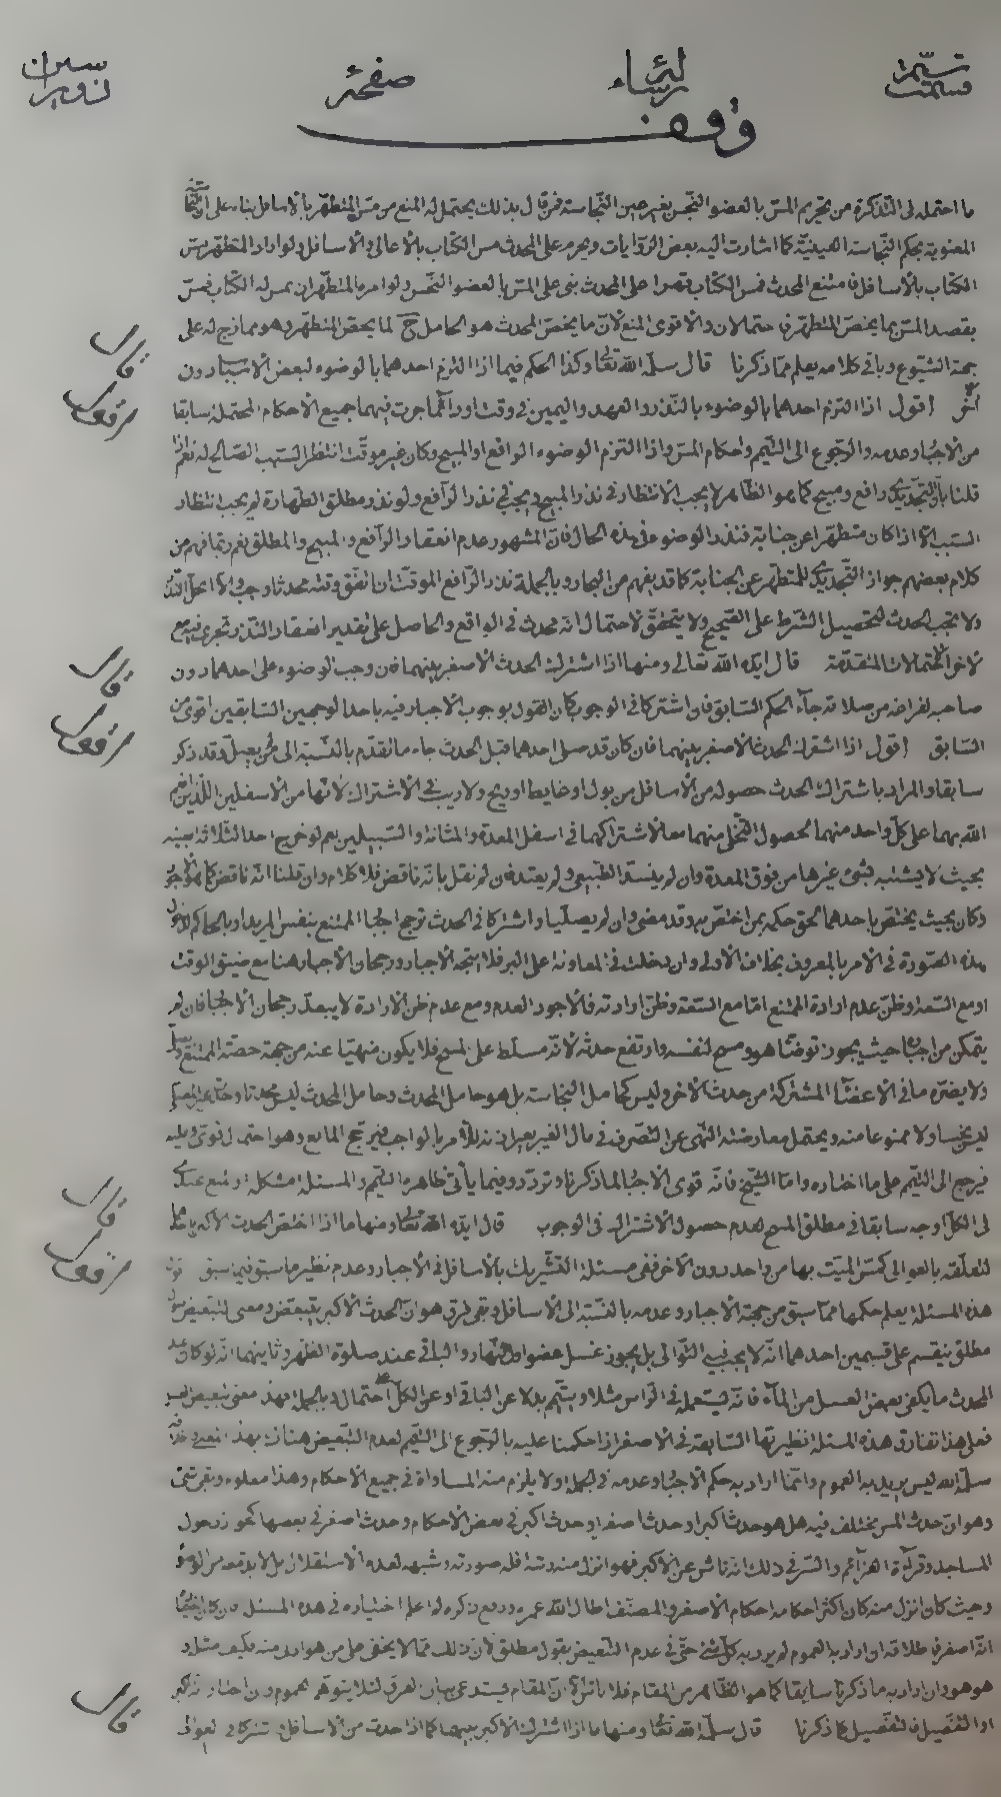 وقف
ما احتمله فى التذكرة من تحريم المس بالعضو النجس بغير عين النجاسة فمن قال بذلك يحتمل له المنع من مس المتطهر بالاسافل بناء على
المعنوية بحكم النجاسة العينية كما اشارت اليه بعض الروايات ويحرم على المحدث مس الكتاب بالاعالى والاسافل ولو اراد المتطهر مس
الكتاب بالاسافل فامتنع المحدث فمس الكتاب قهرا على المحدث بنى على المس بالعضو النجس ولو امره المتطهر ان يمس له الكتاب فمس
بقصد المس بما يخص المتطهر فاحتمالان والاقوى المنع لان ما يخص المحدث هو الحامل ح لما يخص المتطهر وهو ممازج له على
جهة الشيوع وباقى كلامه يعلم مما ذكرنا قال سلمه الله تعالى وكذا الحكم فيما اذا التزم احدهما بالوضوء لبعض الاسباب دون
اقول اذا التزم احدهما بالوضوء بالنذر والعهد واليمين فى وقت او دائما جرت فيهما جميع الاحكام المحتملة سابقا
من الاجبار وعدمه والرجوع الى التيمم واحكام المس واذا التزم الوضوء الرافع او المبيح وكان غير موقت انتظر السبب الصالح له نعم اذا
قلنا بان التجديدى رافع ومبيح كما هو الظاهر لا يجب الانتظار فى نذر المبيح ويجب فى نذر الرافع ولو نذر مطلق الطهارة لم يجب انتظار
السبب الا اذا كان متطهرا عن جنابة فنذر الوضوء فى هذه الحال فان المشهور عدم انعقاد الرافع والمبيح والمطلق نعم ربما فهم من
كلام بعضهم جواز التجديدى للمتطهر عن الجنابة كما قد يفهم من البحار وبالجملة نذر الرافع الموقت ان اتفق وقته محدثا وجب والا انحل النذر
ولا يجب الحدث لتحصيل الشرط على الصحيح ولا يتحقق لاحتمال انه محدث فى الواقع والحاصل على تقدير انعقاد النذر تجرى فيه مع
الاخر الاحتمالات المتقدمة قال ايده الله تعالى ومنها ما اذا اشترك الحدث الاصغر بينهما فان وجب الوضوء على احدهما دون
صاحبه لفراغه من صلاته جاء الحكم السابق فان اشتركا فى الوجوب كان القول بوجوب الاجبار فيه باحد الوجهين السابقين اقوى من
السابق اقول اذا اشترك الحدث الاصغر بينهما فان كان قد صلى احدهما قبل الحدث جاء ما تقدم بالنسبة الى من لم يصل وقد ذكر
سابقا والمراد باشتراك الحدث حصوله من الاسافل من بول او غايط او ريح ولا ريب فى الاشتراك لانها من الاسفلين اللذين انعم
الله بهما على كل واحد منهما لحصول التخلى منهما معا لاشتراكهما فى اسفل المعدة والمثانة والسبيلين نعم لو خرج احد الثلاثة
بحيث لا يشتبه بشىء غيرها من فوق المعدة وان لم ينسد الطبيعى ولم يعتد فان لم نقل بانه ناقض فلا كلام وان قلنا انه ناقض كما هو
وكان بحيث يختص باحدهما لحق حكمه بمن اختص به وقد مضى وان لم يصليا واشتركا فى الحدث ترجح اجبار الممتنع بنفس المريد او بالحاكم
هذه الصورة فى الامر بالمعروف بخلاف الاولى وان دخلت فى المعاونة على البر فلا يتجه الاجبار ورجحان الاجبار هنا مع ضيق الوقت
او مع السعة وظن عدم ارادة الممتنع اما مع السعة وظن ارادته فالاجود العدم ومع عدم ظن الارادة لا يبعد رجحان الاجبار فان لم
يتمكن من اجباره حيث يجوز توضأ هو ومسح لنفسه وارتفع حدثه لانه مسلط على المسح فلا يكون منهيا عنه من جهة حصة الممتنع
ولا يضره ما فى الاعضاء المشتركة من حدث الاخر وليس كحامل النجاسة بل هو حامل المحدث وحامل المحدث ليس محدثا
ليس نجسا ولا ممنوعا منه ويحتمل معارضته النهى عن التصرف فى مال الغير بغير اذنه للامر بالواجب فيرجح المانع وهو احتمال قوى وعليه
فيرجع الى التيمم على ما اختاره واما الشيخ فانه قوى الاجبار لما ذكرنا وتردد وفيما يأتى ظاهره التيمم والمسئلة مشكلة
فى الكل اوجه سابقا فى مطلق المسح لعدم حصول الاشتراك فى الوجوب قال ايده الله تعالى ومنها ما اذا اختص الحدث الاكبر باحدهما
لتعلقه بالعوالى كمس الميت بها من واحد دون الاخر ففى مسئلة التشريك بالاسافل فى الاجبار وعدمه نظير ما سبق فيما سبق
هذه المسئلة يعلم حكمها مما سبق من جهة الاجبار وعدمه بالنسبة الى الاسافل وبقى فرق هو ان الحدث الاكبر يتبعض ومعنى التبعيض
مطلق ينقسم على قسمين احدهما انه لا يجب فيه التوالى بل يجوز غسل عضو اول النهار والباقى عند صلوة الظهر وثانيهما انه لو كان عند
المحدث ما يكفى بعض الغسل من الماء فانه يستعمله فى الراس مثلا ويتيمم بدلا عن الباقى او عن الكل احتمالان وبالجملة فهذا معنى تبعيض
فعلى هذا تفارق هذه المسئلة نظيرتها السابقة فى الاصغر اذا حكمنا عليه بالرجوع الى التيمم لعدم التبعيض هناك بهذا المعنى
سلمه الله ليس يريد به العموم وانما اراد به حكم الاجبار وعدمه فى الجملة ولا يلزم منه المساواة فى جميع الاحكام وهذا معلوم وبقى شىء
وهو ان حدث المس مختلف فيه هل هو حدث اكبر او حدث اصغر او حدث اكبر فى بعض الاحكام وحدث اصغر فى بعضها كجواز دخول
المساجد وقراءة العزائم والسر فى ذلك انه ناش عن الاكبر فهو انزل منه رتبة فله صورته وشبهه لعدم الاستقلال بل لابد معه من الوضوء
وحيث كان انزل منه كان اكثر احكامه احكام الاصغر والمصنف اطال الله عمره ورفع ذكره لو اعلم اختياره فى هذه المسئلة فان كان
انه اصغر فاطلاقه ان اراد به العموم لم يرد به كل شىء حتى فى عدم التبعيض بقول مطلق لان ذلك مما لا يخفى على من هو ادون منه فكيف مثله
هو هو وان اراد به ما ذكرنا سابقا كما هو الظاهر من المقام فلا باس الا ان المقام يستدعى بيان الفرق لئلا يتوهم العموم وان اختار انه اكبر
او التفصيل فالتفصيل كما ذكرنا قال سلمه الله تعالى ومنها ما اذا اشترك الاكبر بينهما كما اذا حدث من الاسافل